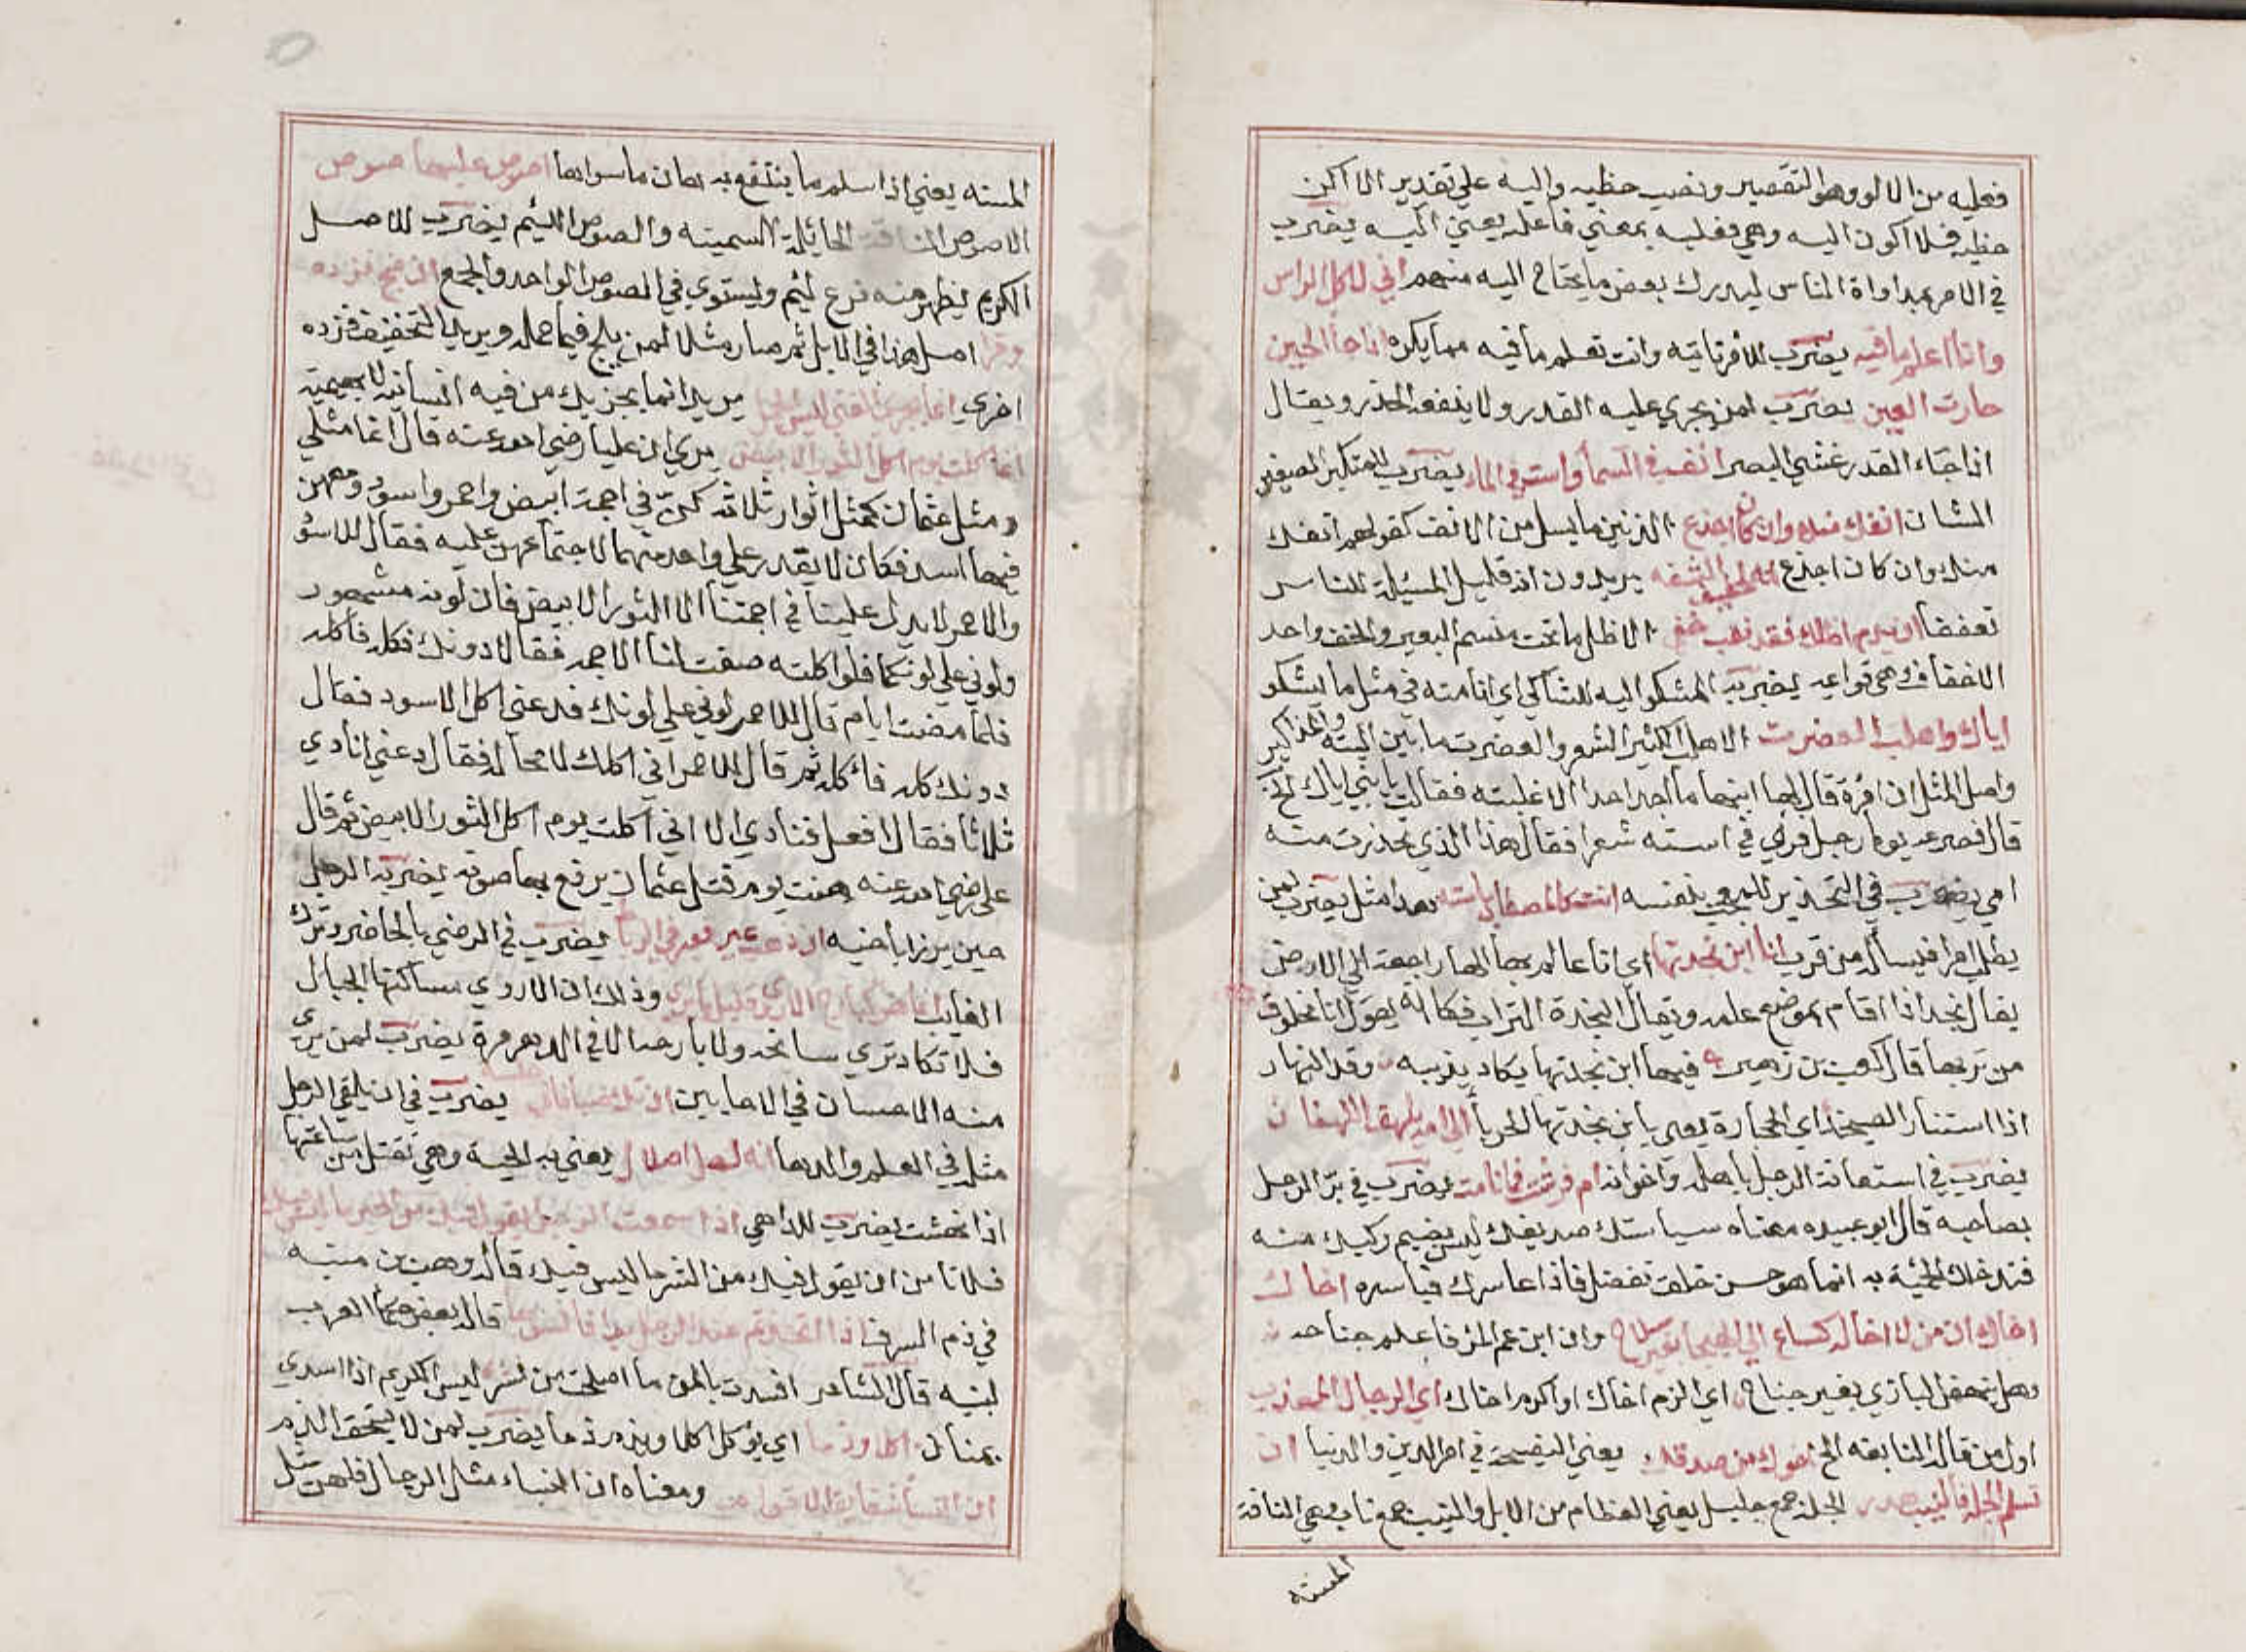 فعليه من الالو وهو التقصير ونصب حظيه واليه علي تقدير الا اكن
حظيه فلا اكون اليه وهي فعليه بمعني فاعله يعني اليه يضرب
في الامر بمداواة الناس ليدرك بعض ما يحتاج اليه منهم اني لاكل الراس
وانا اعلم ما فيه يضرب للامر تاتيه وانت تعلم ما فيه مما يكره اذا جا الحين
حارت العين يضرب لمن يجري عليه القدر ولا ينفعه الحذر ويقال
اذا جاء القدر غشي البصر انف في السما واست في الما يضرب للمتكبر الصغير
الشان انفك منك وان كان اجدع الذنين ما يسل من الانف كقولهم انفك
منك وان كان اجدع انه لخفيف الشفه يريدون انه قليل المسئلة للناس
تعففا ان يدم اظلك فقد نقب خفي الاظل ما تحت منسم البعير والخف واحد
الاخفاف وهي قوايمه يضربه المشكو اليه للشاكي اي انا منه في مثل ما تشكو
اياك واهلب العضرت الاهلب الكثير الشعر والعضرت ما بين السته والمذاكير
واصل المثل ان امرة قال لها ابنها ما اجد احدا الا غلبته فقالت يا بني اياك الخ
قال فصرعه يوما رجل فراي في استه شعرا فقال هذا الذي تحذرت منه
امي يضرب في التحذير للمعجب بنفسه انت كالمصطاد باسته هذا مثل يضرب لمن
يطلب امرا فيساله من قرب انا ابن بجدتها اي انا عالم بها الها راجعة الي الارض
يقال بجد اذا اقام بموضع علمه ويقال البجدة التراب فكانه يقول انا مخلوق
من تربها قال كعب بن زهير فيها ابن بجدتها يكاد يذيبه وقد النهار
اذا استنار الصيخد اي الحجارة يعني بابن بجدتها الحربا الي امه يلهف اللهفان
يضرب في استعانة الرجل باهله واخوانه ام فرشت فانامت يضرب في بر الرجل
بصاحبه قال ابو عبيده معناه سياستك صديقك ليس بضيم ركبك منه
فتدخلك الحمية به انما هو حسن خلق تفضل فاذا عاسرك فياسره اخاك
اخاك ان من لا اخا له كساع الي الهيجا بغير سلاح وان ابن عم المرء فاعلم جناحه
وهل ينهض البازي بغير جناح اي الزم اخاك او اكرم اخاك اي الرجال المهذب
اول من قال النابغه الخ اخوك من صدقك يعني النصيحة في امر الدين والدنيا ان
تسلم الجلة فالنيب هدر الجلة جمع جليل يعني العظام من الابل والنيب جمع ناب وهي الناقة
المسنه
المسنه يعني اذا سلم ما ينتفع به هان ما سواها اصوص عليها صوص
الاصوص الناقة الحائلة السمينه والصوص اللئيم يضرب للاصل
الكريم يظهر منه فرع لئيم ويستوي في الصوص الواحد والجمع ان ضج فزده
وقرا اصل هذا في الابل ثم صار مثلا لمن يلج فيما حمله ويريد التخفيف فزده
اخري انما يجزي الفتي ليس الجمل يريد انما يجزيك من فيه انسانية لا بهيمية
انما اكلت يوم اكل الثور الابيض يروي ان عليا رضي الله عنه قال انما مثلي
ومثل عثمان كمثل اثوار ثلاثة كن في اجمة ابيض واحمر واسود ومعهن
فيها اسد فكان لا يقدر علي واحد منهما لاجتماعهن عليه فقال للاسود
والاحمر لا يدل علينا في اجمتنا الا الثور الابيض فان لونه مشهور
ولوني علي لونكما فلو اكلته صفت لنا الاجمه فقالا دونك فكله فاكله
فلما مضت ايام قال للاحمر لوني علي لونك فدعني اكل الاسود فقال
دونك كله فاكله ثم قال للاحمر اني اكلك لا محاله فقال دعني انادي
ثلاثا فقال افعل فنادي الا اني اكلت يوم اكل الثور الابيض ثم قال
علي رضي الله عنه هنت يوم قتل عثمان يرفع بها صوته يضربه الرجل
حين يرزا باخيه ان ذهب عير فعير في الرباط يضرب في الرضي بالحاضر وترك
الغايب انما هو كبارح الاروي قليلا ما يري وذلك ان الاروي مساكنها الجبال
فلا تكاد تري سانحه ولا بارحه الا في الدهر مرة يضرب لمن يري
منه الاحسان في الاحايين ان تك ضبا فاني حسله يضرب في ان يلقي الرجل
مثله في العلم والدها انه لصل اصلال يعني به الحية وهي تقتل من ساعتها
اذا نهشت يضرب للداهي اذا سمعت الرجل يقول فيك من الخير ما ليس فيك
فلا تامن ان يقول فيك من الشر ما ليس فيك قاله وهب بن منبه
في ذم السرف اذا اتخذتم عند الرجل يدا فانسوها قاله بعض حكما العرب
لبنيه قال الشاعر افسدت بالمن ما اصلحت من نسر ليس الكريم اذا اسدي
بمنان اكلا وذما اي يؤكل اكلا ويذم ذما يضرب لمن لا يستحق الذم
ان النسا شقايق الاقوام ومعناه ان النساء مثل الرجال فلهن مثل